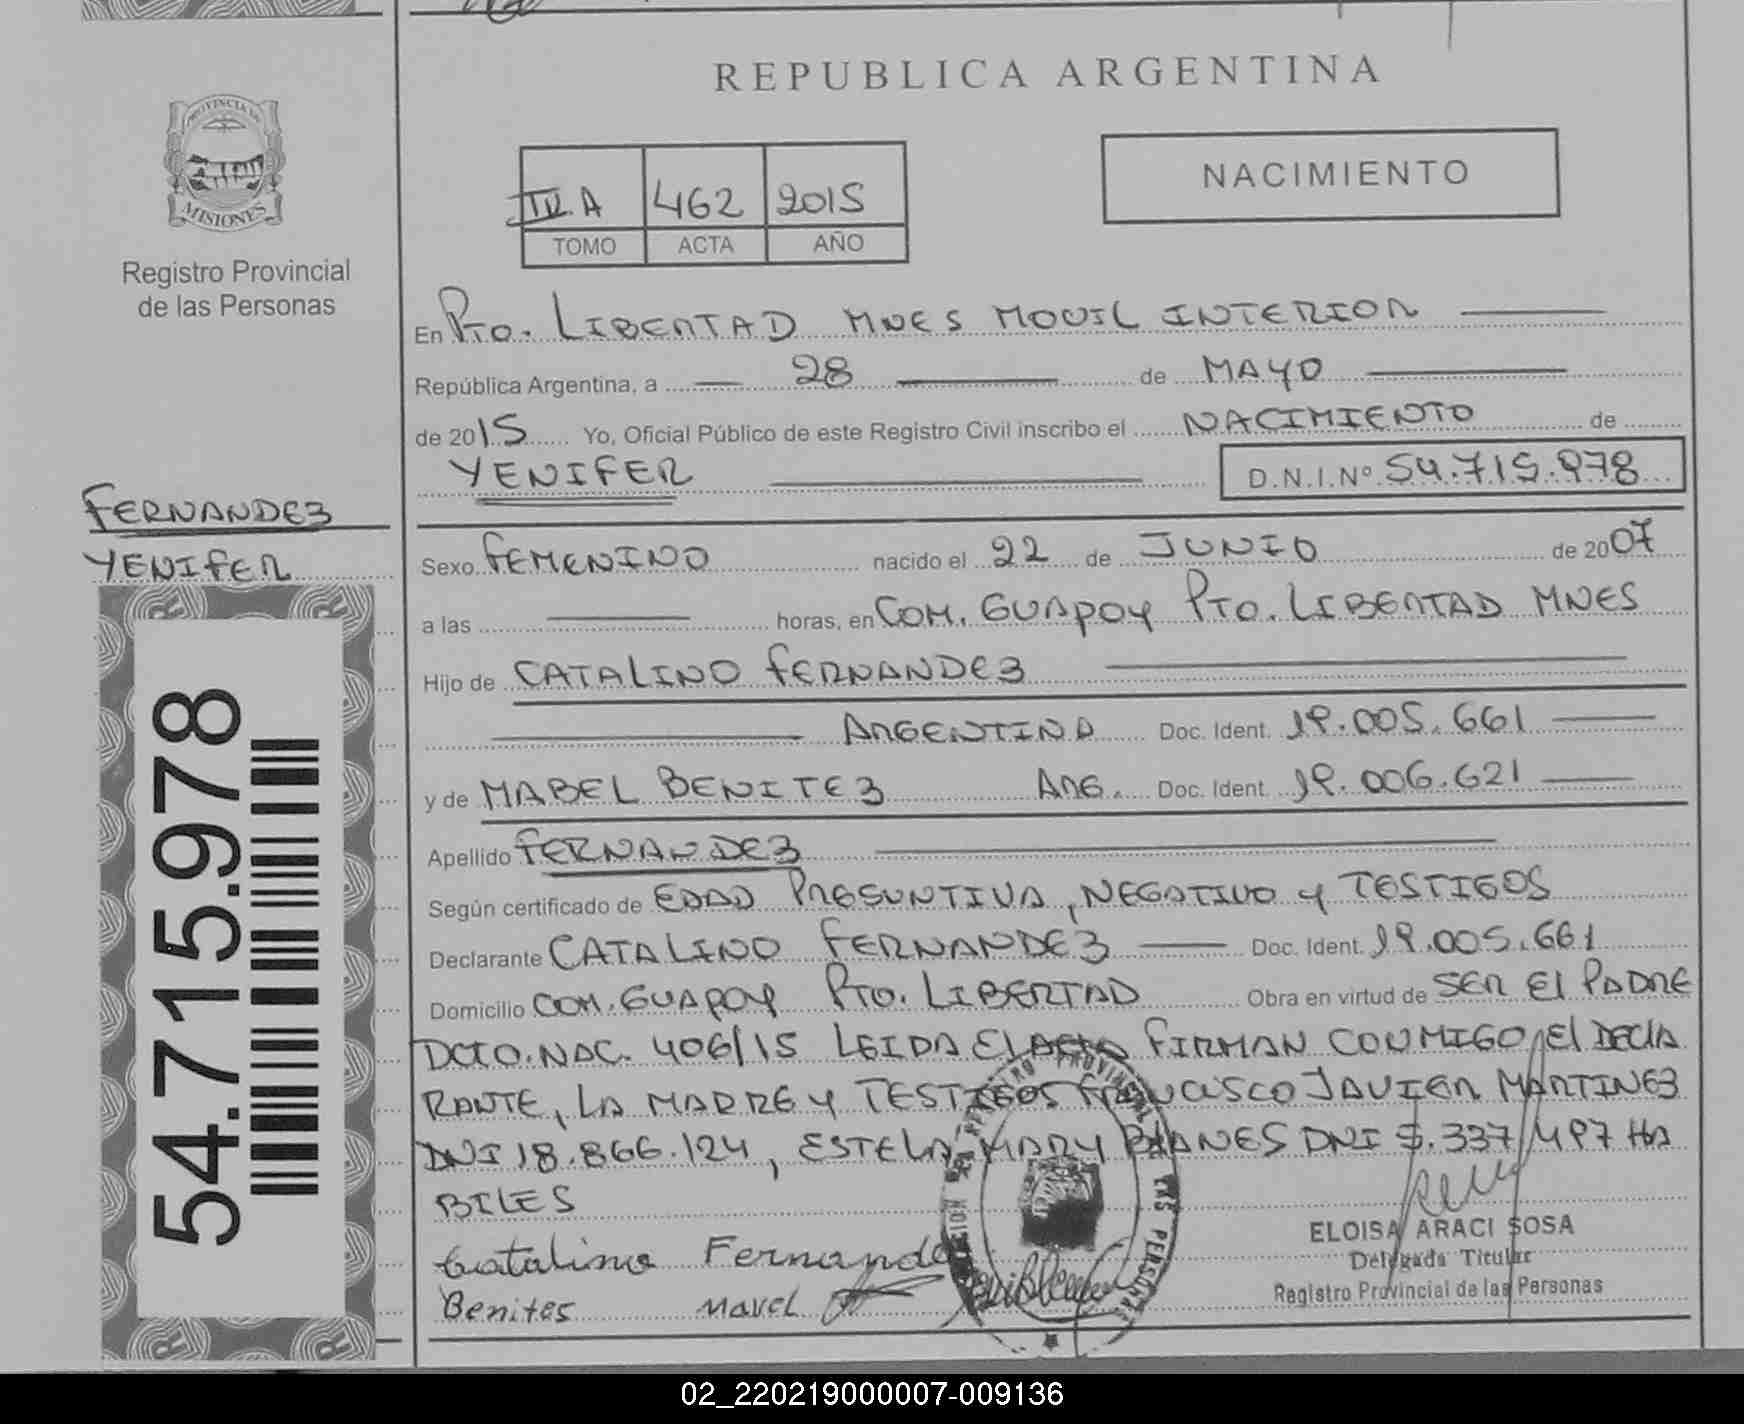 REPUBLICA ARGENTINA
PROVINCIA DE
MISIONES
Registro Provincial
de las Personas
NACIMIENTO
IV.A 462 2015
TOMO ACTA AÑO
En Pto. LIBERTAD MNES MOVIL INTERIOR
República Argentina, a 28 de MAYO
de 2015 Yo, Oficial Público de este Registro Civil inscribo el NACIMIENTO de
YENIFER D.N.I.Nº 54.715.978
FERNANDEZ
YENIFER
54.715.978
Sexo FEMENINO nacido el 22 de JUNIO de 2007
a las horas, en COM. GUAPOY PTO. LIBERTAD MNES
Hijo de CATALINO FERNANDEZ
ARGENTINA Doc. Ident. 19.005.661
y de MABEL BENITEZ ARG. Doc. Ident. 19.006.621
Apellido FERNANDEZ
Según certificado de EDAD PRESUNTIVA, NEGATIVO Y TESTIGOS
Declarante CATALINO FERNANDEZ Doc. Ident. 19.005.661
Domicilio COM. GUAPOY PTO. LIBERTAD Obra en virtud de SER El PADRE
DCTO. NAC. 406/15 LEIDA El ACTA FIRMAN CONMIGO El DECLA
RANTE, LA MADRE Y TESTIGOS FRANCISCO JAVIER MARTINEZ
DNI 18.866.124, ESTELA MARY DNI 337 497 HA
BILES
Catalino Fernande
Benites Mavel
ELOISA ARACI SOSA
Delegada Titular
Registro Provincial de las Personas
02_220219000007-009136